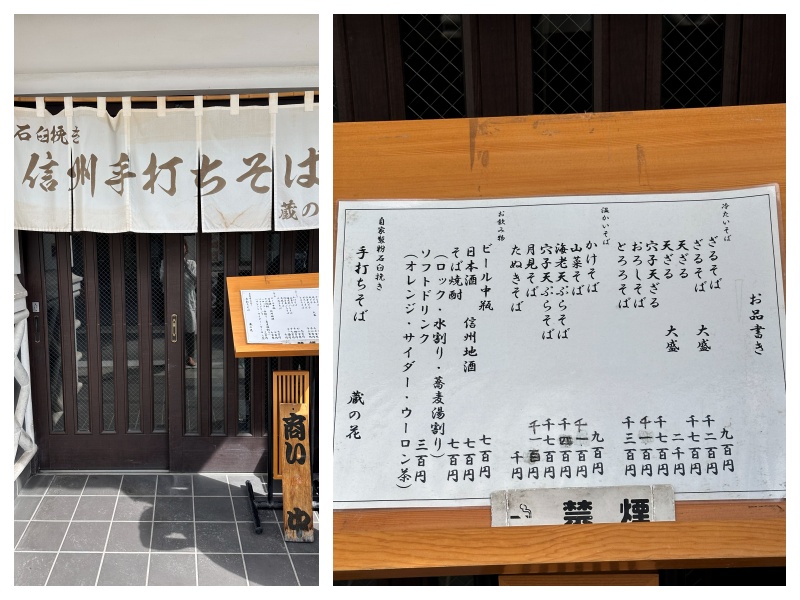 石臼挽き
信州手打ちそば
蔵の
商い中
お品書き
冷たいそば
ざるそば 九百円
ざるそば 大盛 千二百円
天ざる 千七百円
天ざる 大盛 二千円
穴子天ざる 千七百円
おろしそば 千一百円
とろろそば 千三百円
温かいそば
かけそば 九百円
山菜そば 千一百円
海老天ぷらそば 千四百円
穴子天ぷらそば 千七百円
月見そば 千一百円
たぬきそば 千円
お飲み物
ビール中瓶 七百円
日本酒 信州地酒 七百円
そば焼酎 七百円
（ロック・水割り・蕎麦湯割り）
ソフトドリンク 三百円
（オレンジ・サイダー・ウーロン茶）
自家製粉石臼挽き
手打ちそば 蔵の花
禁煙